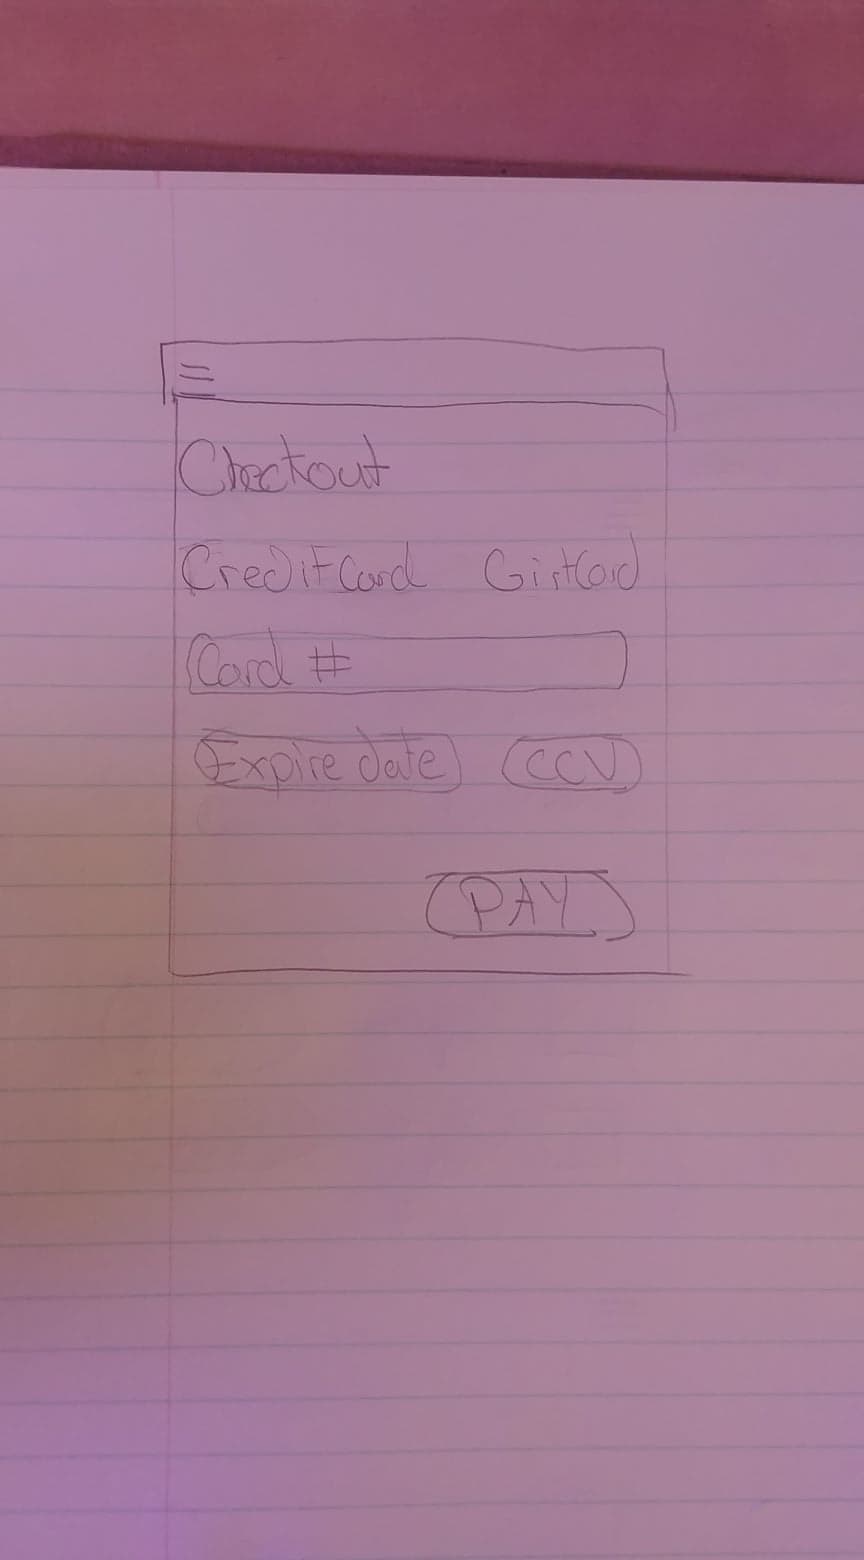 Checkout
Credit Card GiftCard
Card #
Expire date CCV
PAY